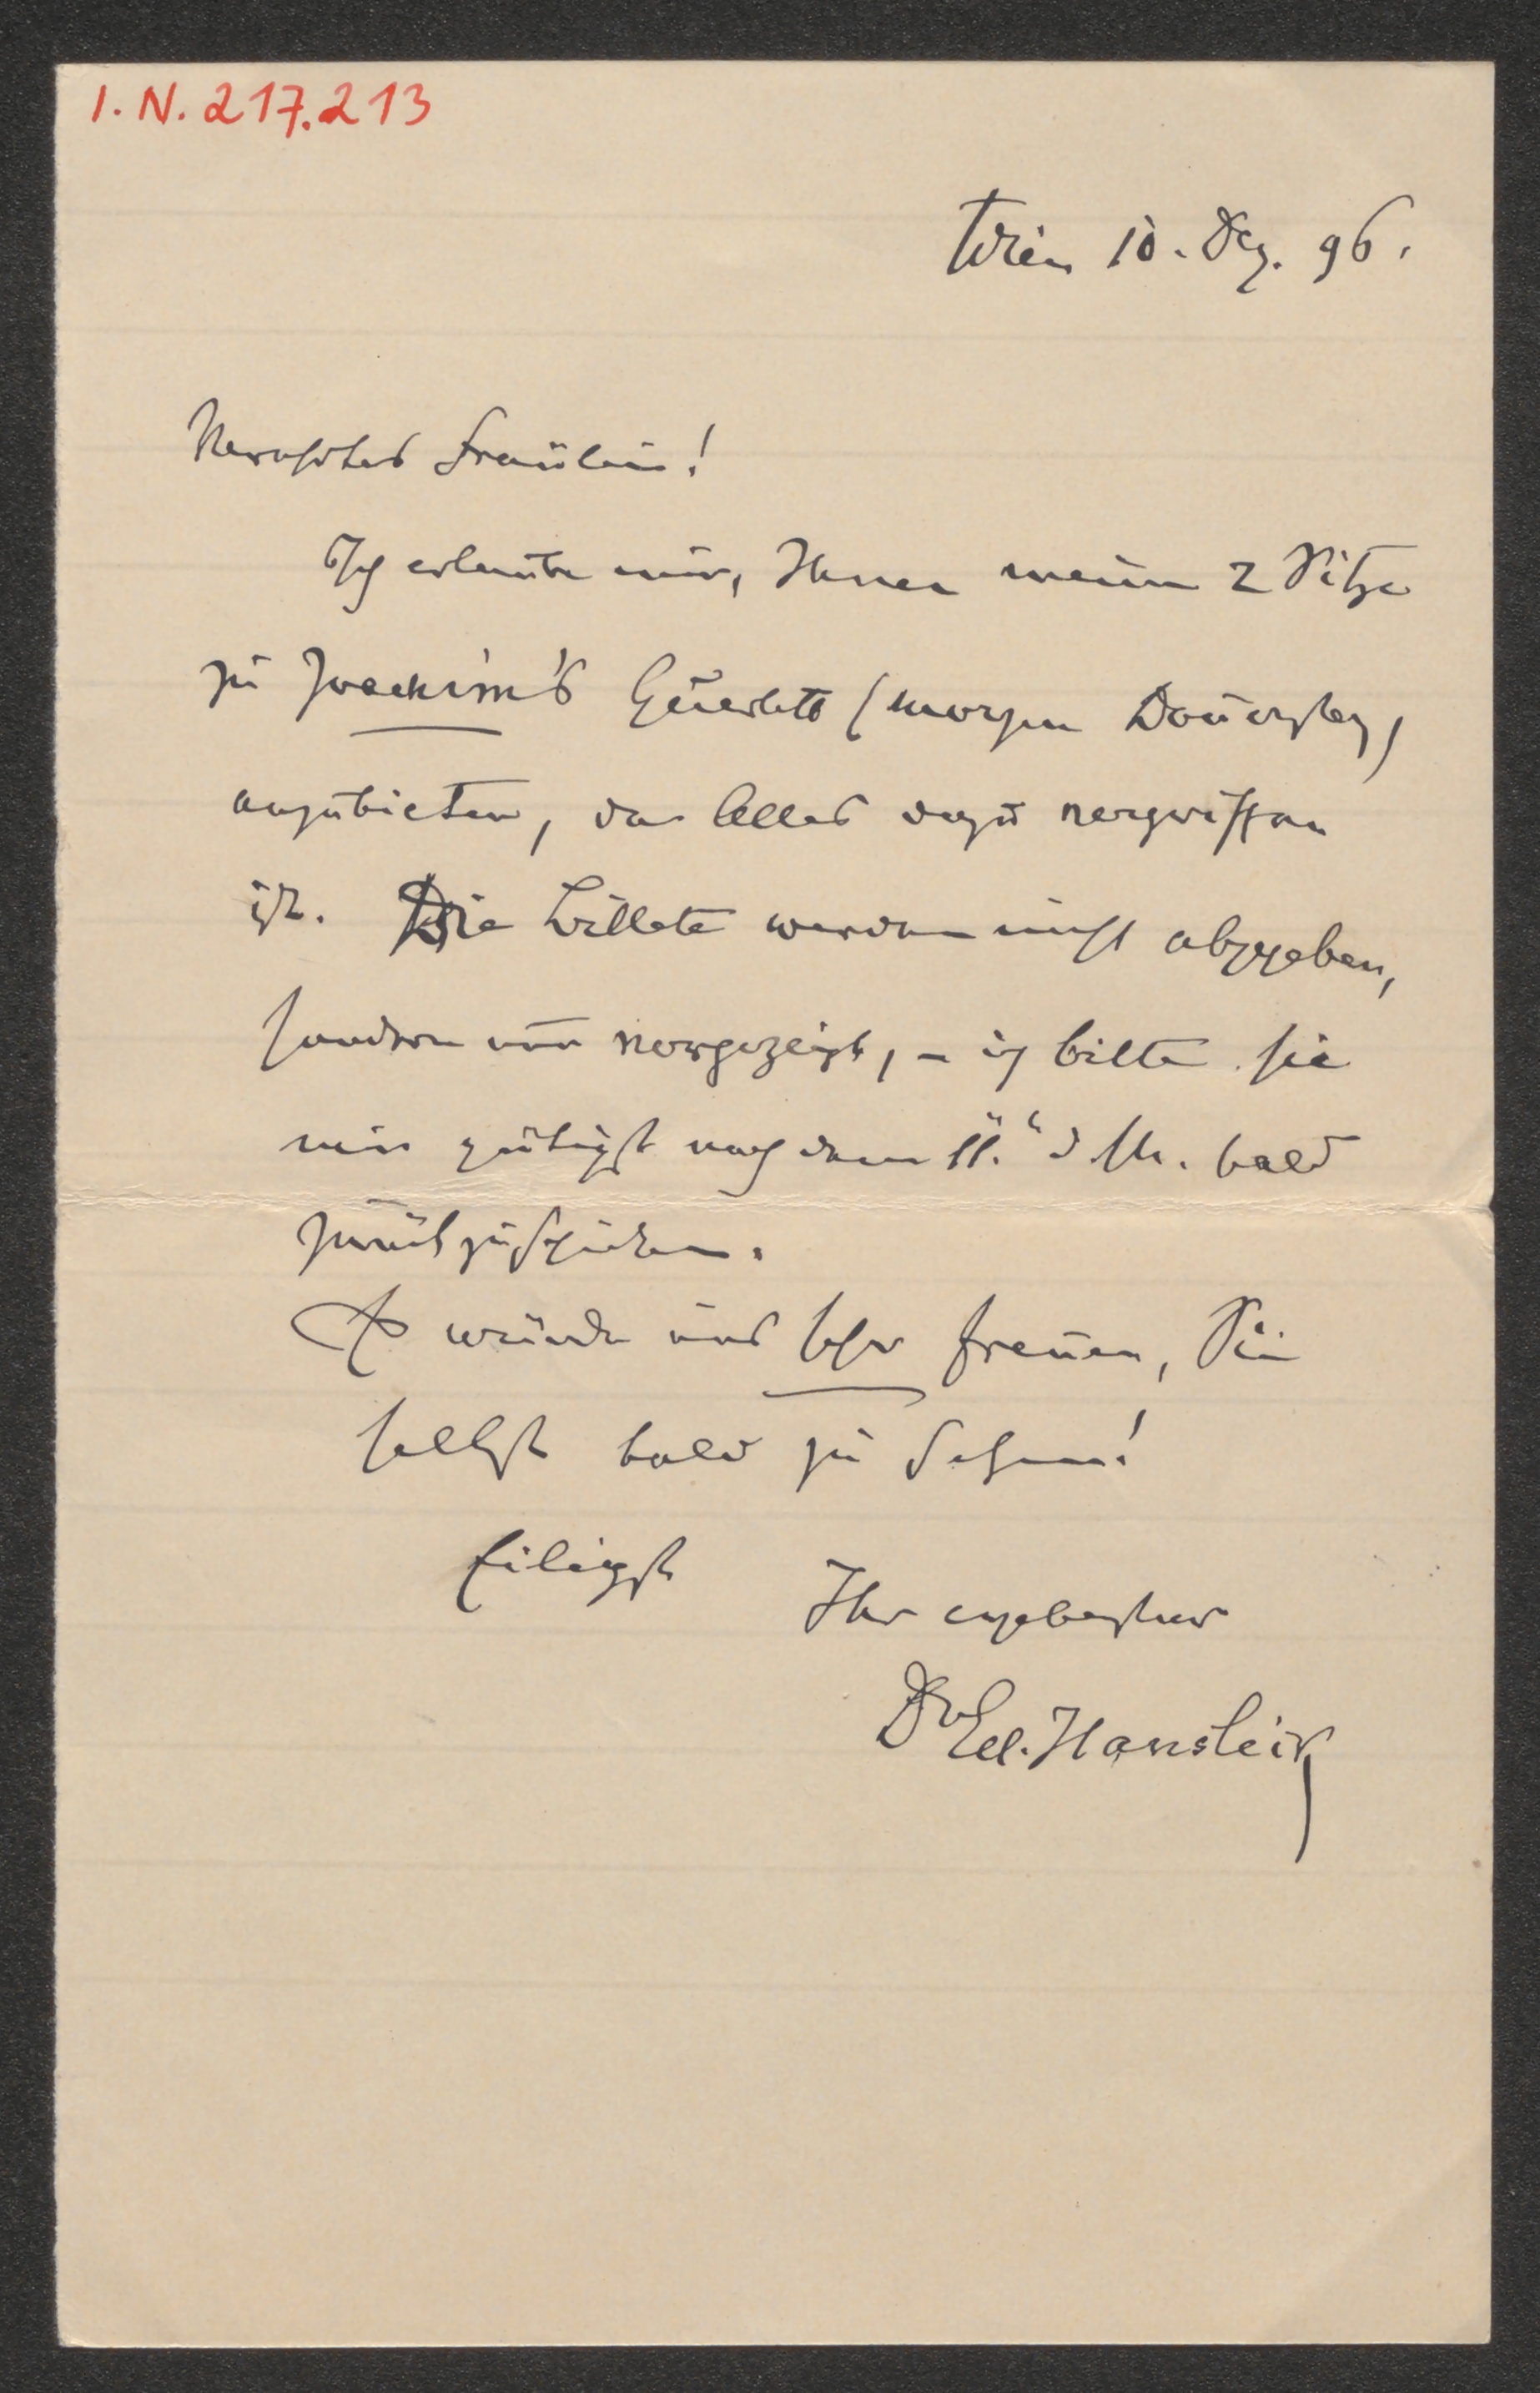 I. N. 217.213
Wien 10. Dez. 96.
Verehrtes Fräulein!
Ich erlaube mir, Ihnen meine 2 Sitze
zu Joachim's Quartett (morgen Don̄erstag)
anzubieten, da Alles dazu vergriffen
ist. Die Billete werden nicht abgegeben,
sondern nur vorgezeigt, – ich bitte sie
mir gütigst nach dem 11. d M. bald
zurückzuschicken.
Es würde uns sehr freuen, Sie
selbst bald zu sehen!
Eiligst Ihr ergebenster
Dr Ed. Hanslick